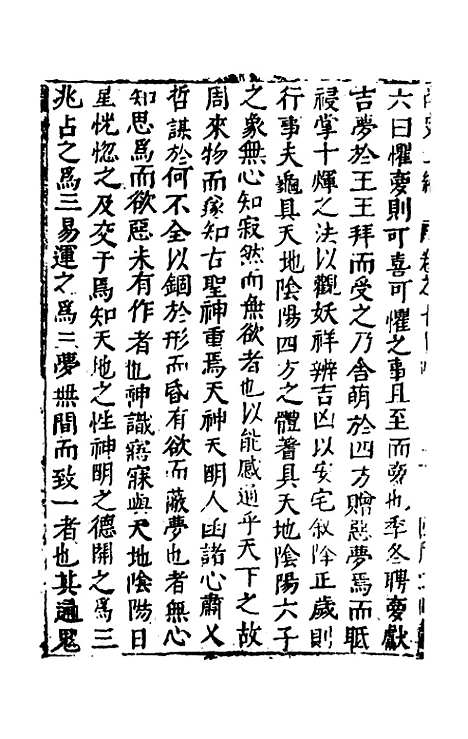 六曰懼夢則可喜可懼之事且至而夢也季冬聘夢獻
吉夢於王王拜而受之乃舍萌於四方贈惡夢焉而眡
祲掌十煇之法以觀妖祥辨吉凶以安宅敘降正歲則
行事夫龜具天地陰陽四方之體蓍具天地陰陽六子
之象無心知寂然而無欲者也以能感通乎天下之故
周來物而逆知古聖神重焉天神天明人函諸心肅乂
哲謀於何不全以錮於形而昏有欲而蔽夢也者無心
知思爲而欲惡未有作者也神識寤寐與天地陰陽日
星恍惚之及交于焉知天地之性神明之德開之爲三
兆占之爲三易運之爲三夢無間而致一者也其通鬼